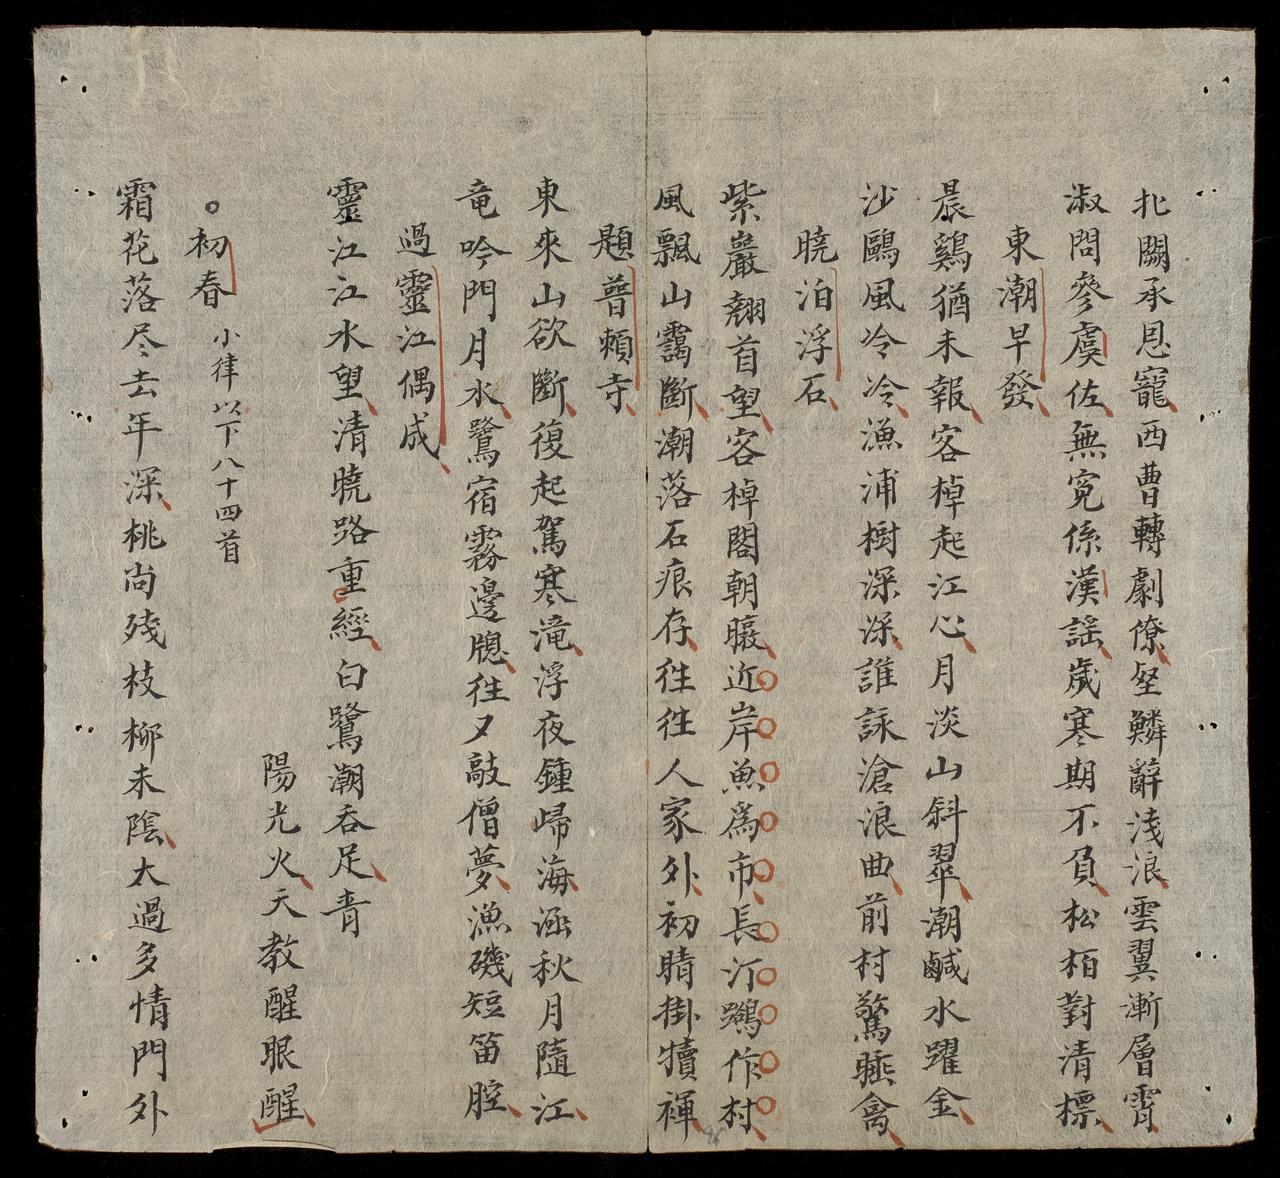 北闕承恩寵西曹轉劇僚壑鱗辭淺浪雲翼漸層霄
淑問參虞佐無寃係漢謡歲寒期不負松栢對清標
東潮早發
晨鷄猶未報客棹起江心月淡山斜翠潮鹹水躍金
沙鷗風冷冷漁浦樹深深誰詠滄浪曲前村驚睡禽
曉泊浮石
紫巖翹首望客棹閣朝暾近岸魚爲市長汀鷁作村
風飄山靄斷潮落石痕存往往人家外初晴掛犢褌
題普賴寺
東來山欲斷復起駕寒滝浮夜鍾歸海涵秋月隨江
竜吟門月水鷺宿霧邊牕徃又敲僧夢漁磯短笛腔
過靈江偶成
靈江江水望清曉路重經白鷺潮吞足青
陽光火天教醒眼醒
初春 小律以下八十四首
霜花落尽去年深桃尚殘枝柳未陰太過多情門外